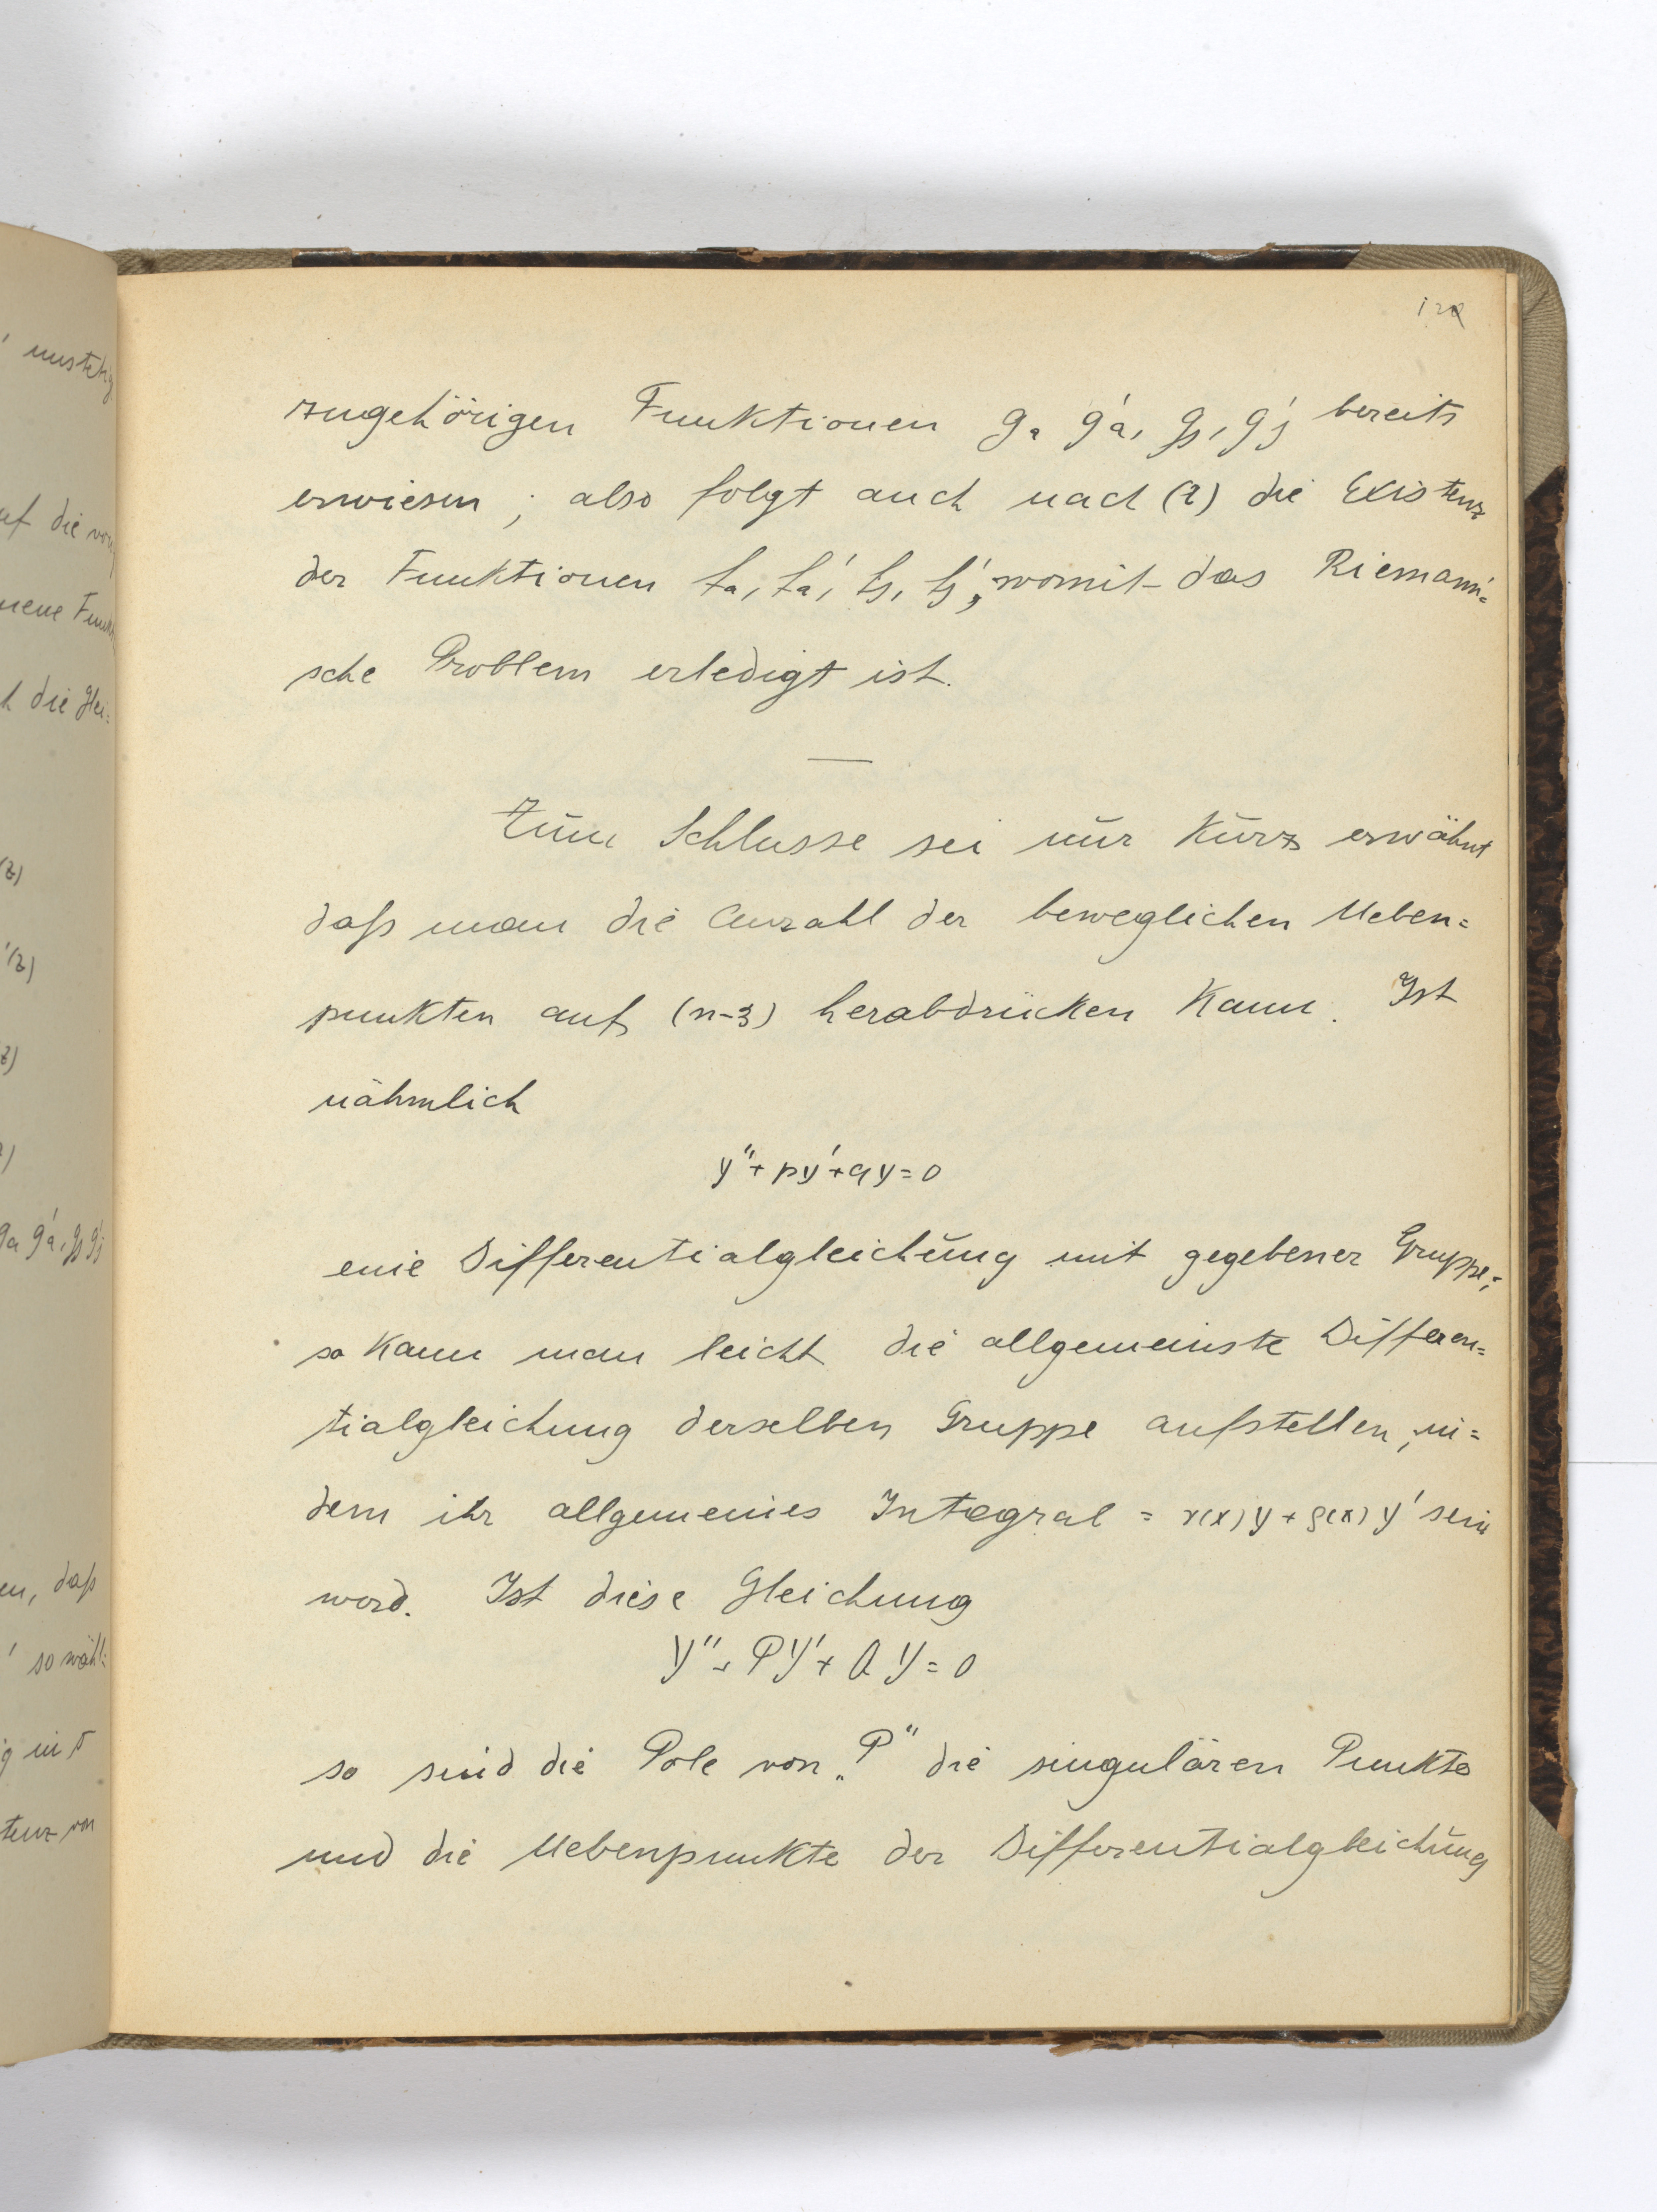 zugehörigen Funktionen ga g'a, gj, g'j bereits
erwiesen; also folgt auch nach (2) die Existenz
der Funktionen fa, fa', fj, fj', womit das Riemann'=
sche Problem erledigt ist.
Zum Schlusse sei nur kurz erwähnt
daß man die Anzahl der beweglichen Neben=
punkten auf (n-3) herabdrücken kann. Ist
nähmlich
y''+py'+qy=0
eine Differentialgleichung mit gegebener Gruppe;
so kann man leicht die allgemeinste Differen=
tialgleichung derselben Gruppe aufstellen, in=
dem ihr allgemeines Integral = r(x)y + ρ(x)y' sein
word. Ist diese Gleichung
Y''+PY'+QY=0
so sind die Pole von „P“ die singulären Punkte
und die Nebenpunkte der Differentialgleichung
unstetig
auf die
neue
h die Glei=
(z)
'(z)
ga g'a, gj g'j
en, daß
' so wähl=